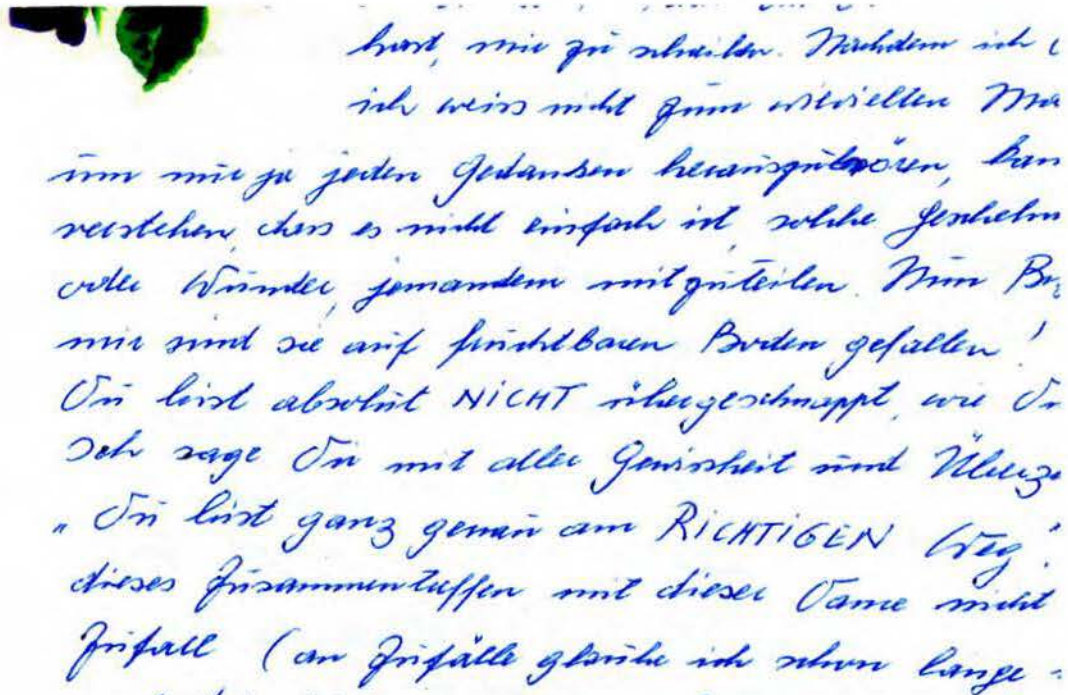 hast, mir zu schreiben. Nachdem ich
ich weiss nicht zum wievielten
um mir ja jeden Gedanken herauszu, kan
verstehen, dass es nicht einfach ist, solche Geschehn
oder Wunder, jemandem mitzuteilen. Nun
mir sind sie auf fruchtbaren Boden gefallen!
Du bist absolut NICHT übergeschnappt, wie Du
Ich sage Dir mit aller Gewissheit und Überze
"Du bist ganz genau am RICHTIGEN Weg"
dieses Zusammentreffen mit dieser Dame nicht
Zufall (an Zufälle glaube ich schon lange